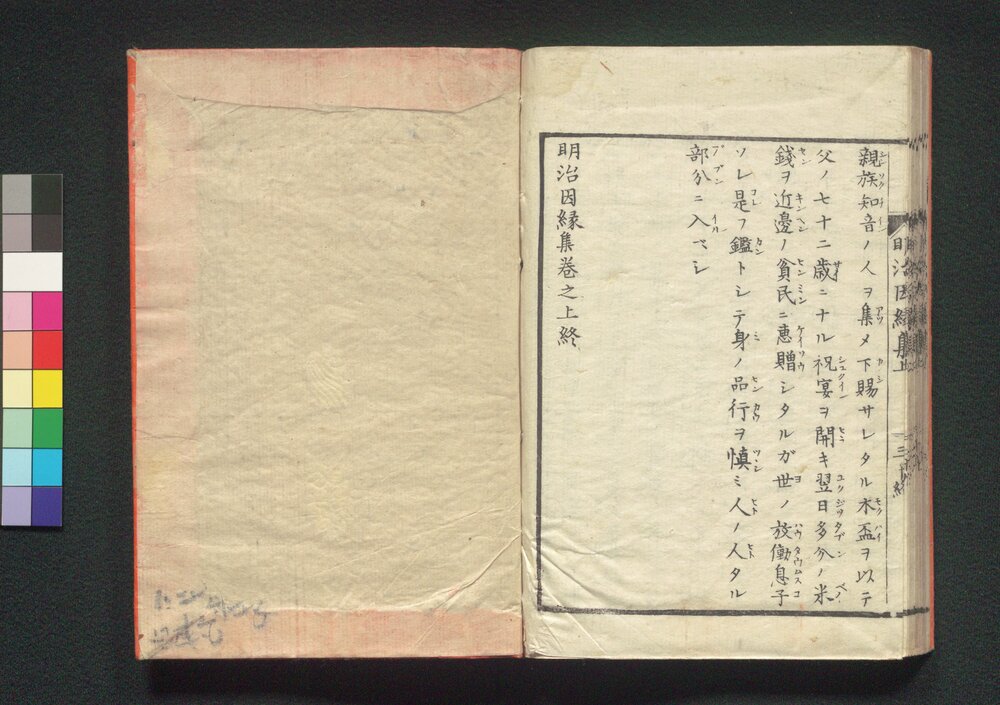 親族知音ノ人ヲ集メ下賜サレタル木盃ヲ以テ
父ノ七十二歳ニナル祝宴ヲ開キ翌日多分ノ米
錢ヲ近邊ノ貧民ニ惠贈シタルガ世ノ放働息子
ソレ是ヲ鑑トシテ身ノ品行ヲ慎ミ人ノ人タル
部分ニ入ベシ
明治因縁集卷之上終
明治因縁集上